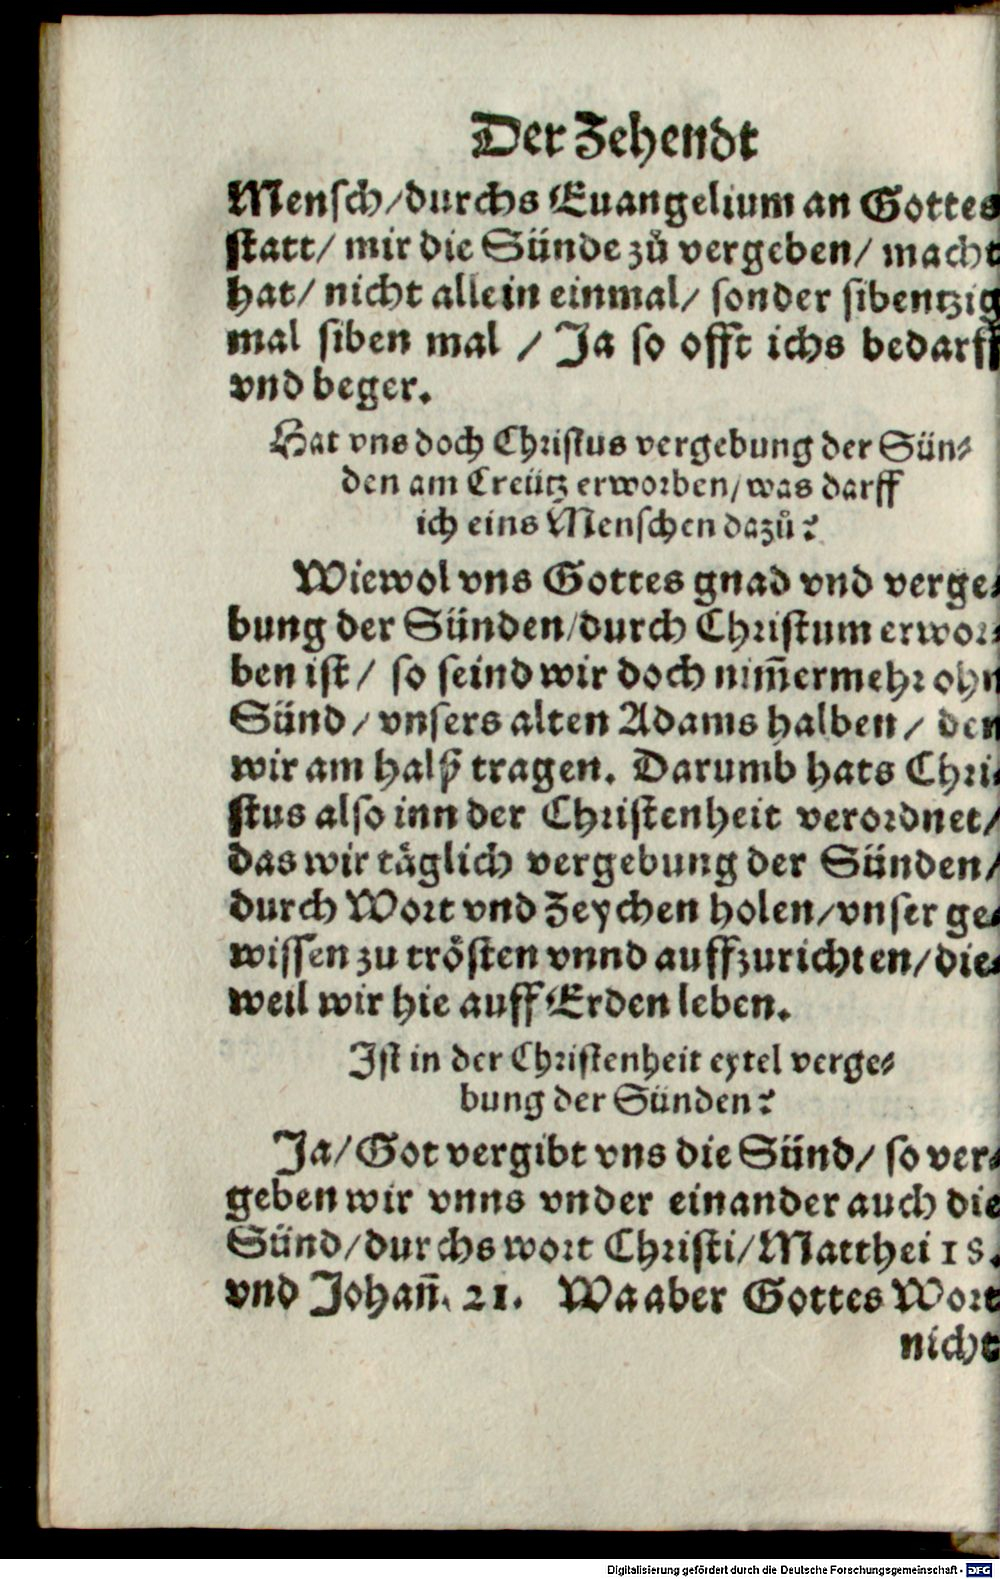 Der Zehendt
Mensch/durchs Euangelium an Gottes
statt/ mir die Sünde zů vergeben/ macht
hat/ nicht allein einmal/ sonder sibentzig
mal siben mal / Ja so offt ichs bedarff
vnd beger.
Hat vns doch Christus vergebung der Sün⸗
den am Creütz erworben/was darff
ich eins Menschen dazů?
Wiewol vns Gottes gnad vnd verge⸗
bung der Sünden/durch Christum erwor⸗
ben ist/ so seind wir doch nim̄ermehr ohn
Sünd/vnsers alten Adams halben/ den
wir am halß tragen. Darumb hats Chri⸗
stus also inn der Christenheit verordnet/
das wir täglich vergebung der Sünden/
durch Wort vnd Zeychen holen/vnser ge⸗
wissen zu trösten vnnd auffzurichten/die⸗
weil wir hie auff Erden leben.
Ist in der Christenheit eytel verge⸗
bung der Sünden?
Ja/Got vergibt vns die Sünd/ so ver⸗
geben wir vnns vnder einander auch die
Sünd/durchs wort Christi/Matthei 18.
vnd Johan̄. 21. Wa aber Gottes Wort
nicht
Digitalisierung gefördert durch die Deutsche Forschungsgemeinschaft - DFG